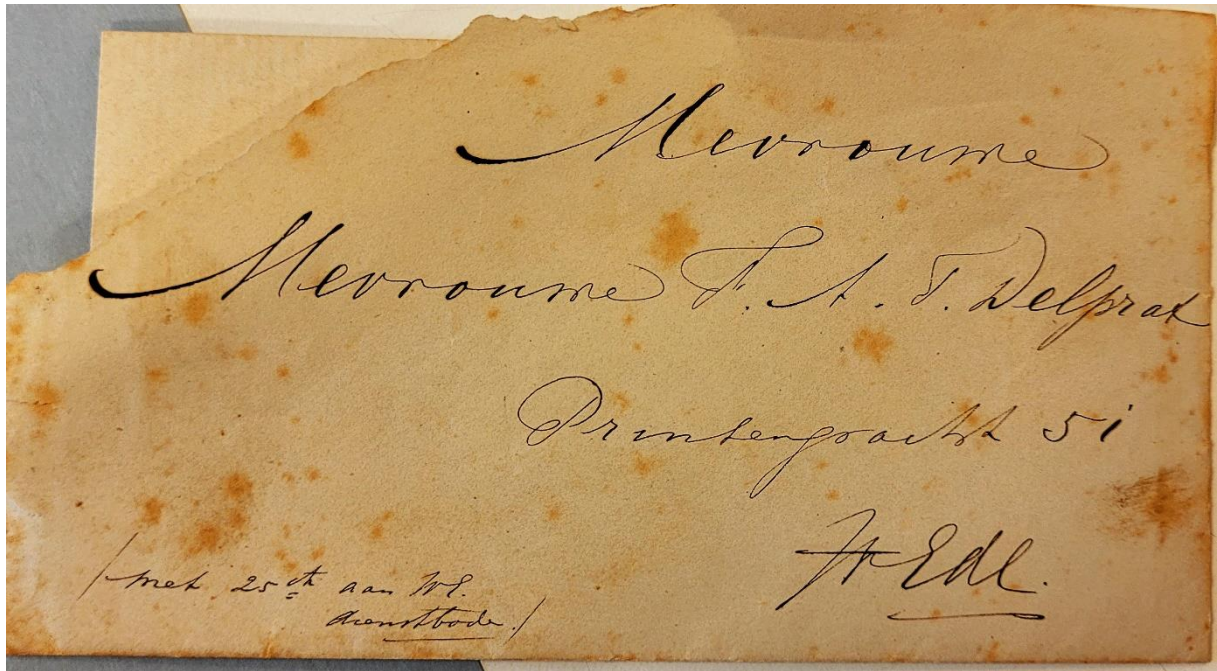 Mevrouwe
Mevrouwe F. A. T. Delprat
Prinsengracht 51
HEdl.
(met 25 ct aan HE.
dienstbode.)